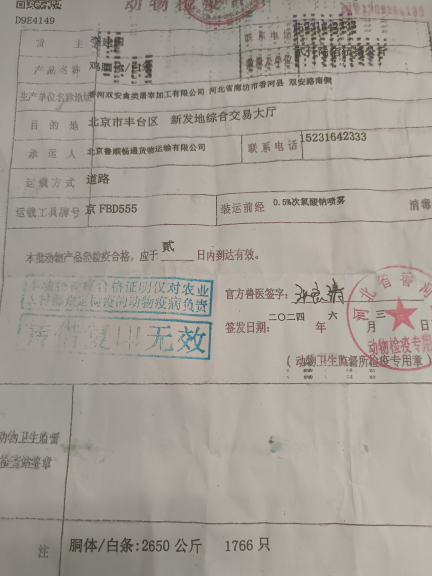 D9E4149
动物检疫
货 主
联系电话
产品名称
生产单位名称地址 香河双安禽类屠宰加工有限公司 河北省廊坊市香河县 双安路南侧
目的地 北京市丰台区 新发地综合交易大厅
承运人 北京鲁顺畅通货物运输有限公司 联系电话 15231642333
运载方式 道路
运载工具牌号 京FBD555 装运前经 0.5%次氯酸钠喷雾 消毒
本批动物产品经检疫合格，应于 贰 日内到达有效。
本动物检疫合格证明仅对农业
动物疫病负责
无效
官方兽医签字：
签发日期： 二〇二四 年 六 月 三
河北省香河
动物检疫专用
（动物卫生监督所检疫专用章）
动物卫生监督
检查站签章
注 胴体/白条:2650公斤 1766只